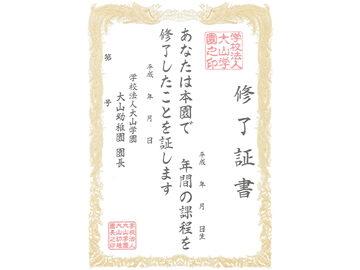 修了証書
平成　年　月　日生
あなたは本園で　年間の課程を
修了したことを証します
平成　年　月　日
学校法人大山学園
大山幼稚園 園長
第　号
学校法人
大山学
園之印
学校法人
大山学園
大山幼稚
園長之印